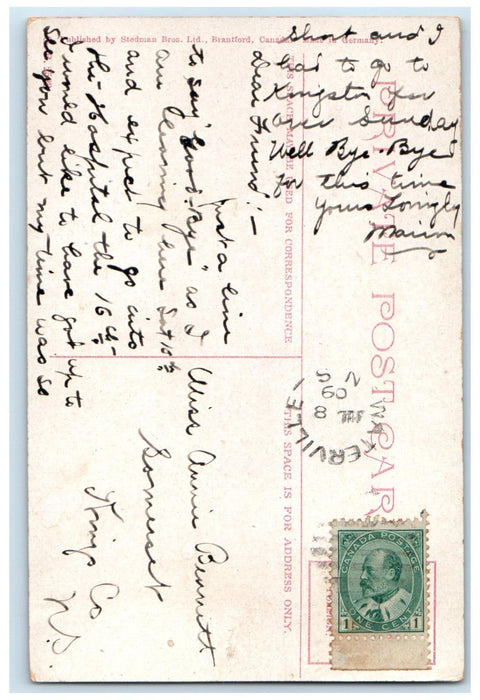 Published by Stedman Bros. Ltd., Brantford, Canada. Made in Germany.
PRIVATE POSTCARD
THIS SPACE MAY BE USED FOR CORRESPONDENCE
THIS SPACE IS FOR ADDRESS ONLY.
Dear Friend:-
Just a line
to say "Good-Bye" as I
am leaving here Sat 10th
and expect to go into
the Hospital the 16th
I would like to have got up to
See you but my time was so
short and I
had to go to
Kingston for
over Sunday
Well Bye-Bye
for this time
Yours Lovingly
Miss Annie Bennett
Somerset
Kings Co
N.S.
WATERVILLE
JUL 8
09
N S
CANADA POSTAGE
1 ONE CENT 1